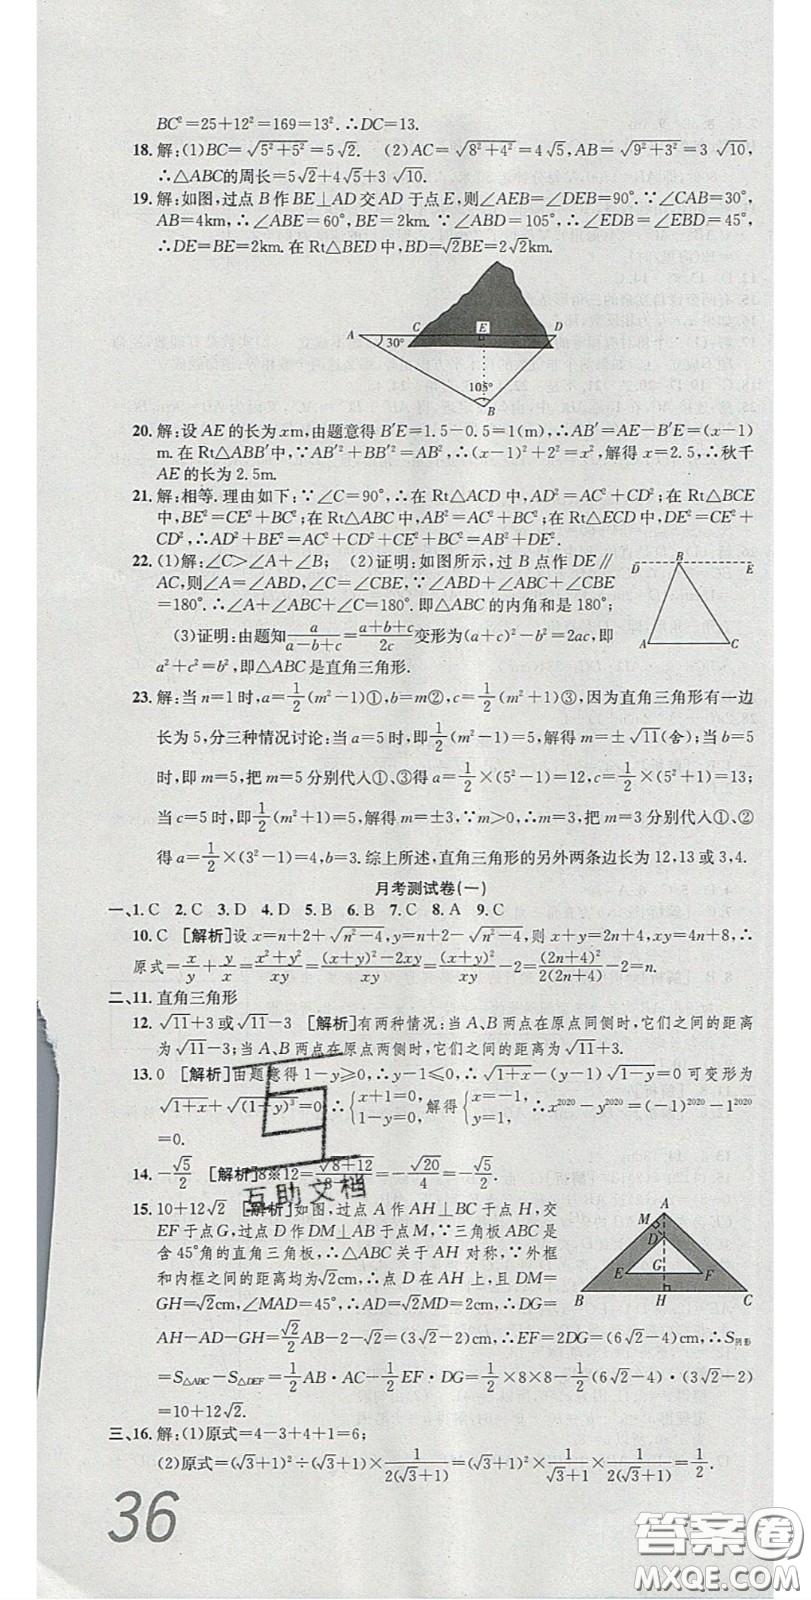 BC²=25+12²=169=13². ∴DC=13.
18. 解:(1)BC=√(5²+5²)=5√2. (2)AC=√(8²+4²)=4√5,AB=√(9²+3²)=3 √10,
∴△ABC的周长=5√2+4√5+3 √10.
19. 解:如图,过点B作BE⊥AD交AD于点E,则∠AEB=∠DEB=90°.∵∠CAB=30°,
AB=4km,∴∠ABE=60°,BE=2km.∵∠ABD=105°,∴∠EDB=∠EBD=45°,
∴DE=BE=2km.在Rt△BED中,BD=√2BE=2√2km.
A C E D
30°
105°
B
20. 解:设AE的长为x m,由题意得B′E=1.5-0.5=1(m),∴AB′=AE-B′E=(x-1)
m.在Rt△ABB′中,∵AB′²+B′B²=AB²,∴(x-1)²+2²=x²,解得x=2.5,∴秋千
AE的长为2.5m.
21. 解:相等.理由如下:∵∠C=90°,∴在Rt△ACD中,AD²=AC²+CD²;在Rt△BCE
中,BE²=CE²+BC²;在Rt△ABC中,AB²=AC²+BC²;在Rt△ECD中,DE²=CE²+
CD²,∴AD²+BE²=AC²+CD²+CE²+BC²=AB²+DE².
22. (1)解:∠C>∠A+∠B; (2)证明:如图所示,过B点作DE∥
AC,则∠A=∠ABD,∠C=∠CBE,∵∠ABD+∠ABC+∠CBE
=180°.∴∠A+∠ABC+∠C=180°.即△ABC的内角和是180°;
D B E
A C
(3)证明:由题知a/(a-b+c)=(a+b+c)/2c变形为(a+c)²-b²=2ac,即
a²+c²=b²,即△ABC是直角三角形.
23. 解:当n=1时,a=1/2(m²-1)①,b=m②,c=1/2(m²+1)③,因为直角三角形有一边
长为5,分三种情况讨论:当a=5时,即1/2(m²-1)=5,解得m=±√11(舍);当b=5
时,即m=5,把m=5分别代入①、③得a=1/2×(5²-1)=12,c=1/2×(5²+1)=13;
当c=5时,即1/2(m²+1)=5,解得m=±3.∵m>0,∴m=3,把m=3分别代入①、②
得a=1/2×(3²-1)=4,b=3.综上所述,直角三角形的另外两条边长为12,13或3,4.
月考测试卷(一)
一、1. C 2. C 3. D 4. D 5. B 6. B 7. C 8. A 9. C
10. C [解析]设x=n+2+√(n²-4),y=n+2-√(n²-4),则x+y=2n+4,xy=4n+8,∴
原式=x/y+y/x=(x²+y²)/xy=((x+y)²-2xy)/xy=(x+y)²/xy-2=(2n+4)²/2(2n+4)-2=n.
二、11. 直角三角形
12. √11+3或√11-3 [解析]有两种情况:当A、B两点在原点同侧时,它们之间的距离
为√11-3;当A、B两点在原点两侧时,它们之间的距离为√11+3.
13. 0 [解析]由题意得1-y≥0,∴y-1≤0,∴√(1+x)-(y-1)√(1-y)=0可变形为
√(1+x)+√((1-y)³)=0,∴{x+1=0, 1-y=0, 解得{x=-1, y=1, ∴x²⁰²⁰-y²⁰²⁰=(-1)²⁰²⁰-1²⁰²⁰
=0.
14. -√5/2 [解析]8※12=√(8+12)/(8-12)=-√20/4=-√5/2.
15. 10+12√2 [解析]如图,过点A作AH⊥BC于点H,交
EF于点G,过点D作DM⊥AB于点M,∵三角板ABC是
含45°角的直角三角板,∴△ABC关于AH对称,∵外框
和内框之间的距离均为√2cm,∴点D在AH上,且DM=
GH=√2cm,∠MAD=45°,∴AD=√2MD=2cm,∴DG=
A
M
D
G
E F
B H C
AH-AD-GH=√2/2AB-2-√2=(3√2-2)cm,∴EF=2DG=(6√2-4)cm,∴S阴影
=S△ABC-S△DEF=1/2AB·AC-1/2EF·DG=1/2×8×8-1/2(6√2-4)·(3√2-2)
=10+12√2.
三、16. 解:(1)原式=4-3+4+1=6;
(2)原式=(√3+1)²÷(√3+1)×1/2(√3+1)=(√3+1)²×1/(√3+1)×1/2(√3+1)=1/2.
36
互助文档
答案圈
MXQE.COM